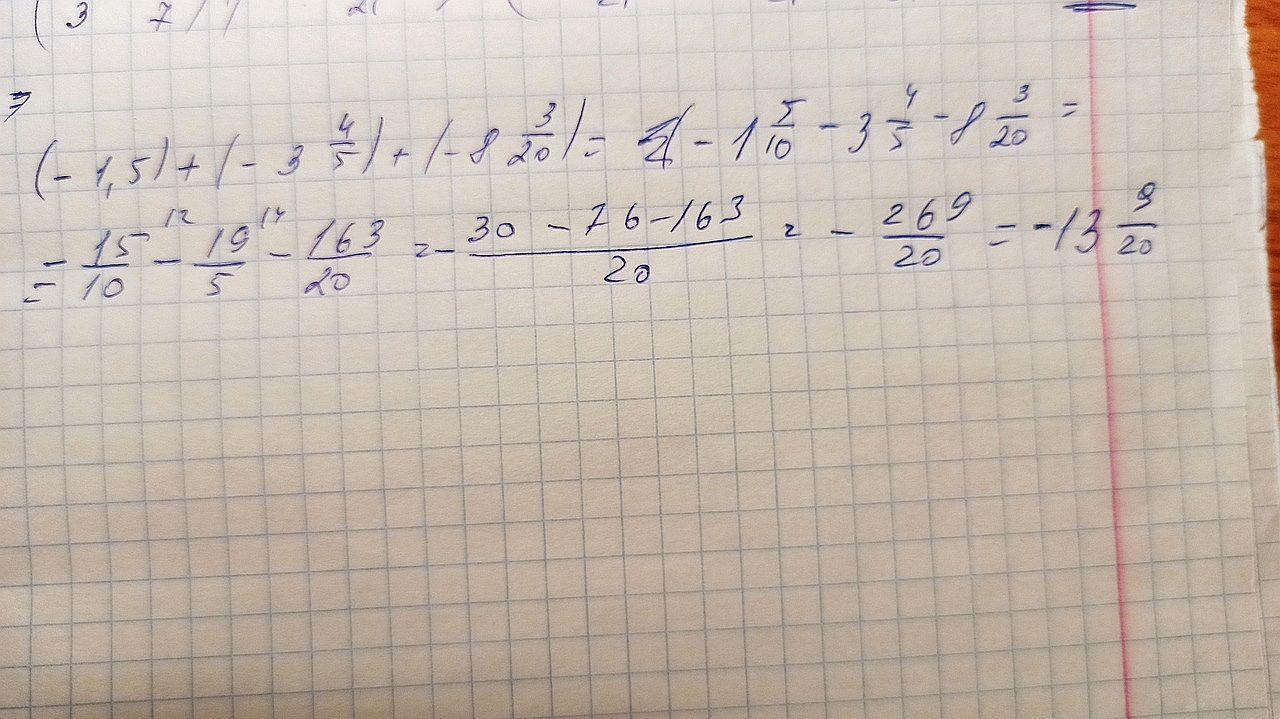 (3 7)
(-1,5)+(-3 4/5)+(-8 3/20)= -1 5/10 -3 4/5 -8 3/20 =
= -15/10 |2 -19/5 |4 -163/20 =- 30-76-163/20 = - 269/20 =-13 9/20